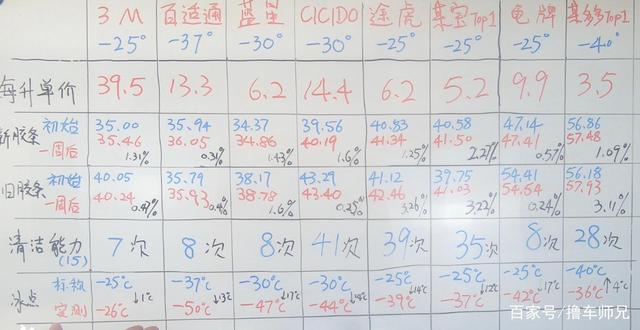 3M 百适通 蓝星 CICIDO 途虎 某宝Top1 龟牌 某多Top1
-25° -37° -30° -30° -25° -25° -25° -40°
每升单价 39.5 13.3 6.2 14.4 6.2 5.2 9.9 3.5
新胶条 初始 35.00 35.94 34.37 39.56 40.83 40.58 47.14 56.86
一周后 35.46 36.05 34.86 40.19 41.34 41.50 47.41 57.48
1.31% 0.31% 1.43% 1.6% 1.25% 2.27% 0.57% 1.09%
旧胶条 初始 40.05 35.79 38.17 43.29 41.12 39.75 54.41 56.18
一周后 40.24 35.93 38.78 43.40 42.46 41.03 54.54 57.93
0.47% 0.4% 1.6% 0.25% 3.26% 3.22% 0.24% 3.11%
清洁能力 7次 8次 8次 41次 39次 35次 8次 28次
(15)
冰点 标称 -25℃ -37℃ -30℃ -30℃ -25℃ -25℃ -25℃ -40℃
↓1℃ ↓13℃ ↓17℃ ↓14℃ ↓14℃ ↓12℃ ↓17℃ ↑4℃
实测 -26℃ -50℃ -47℃ -44℃ -39℃ -37℃ -42℃ -36℃
百家号/撸车师兄